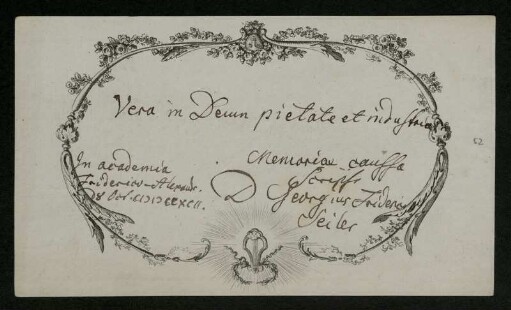 Vera in Deum pietate et industria
In academia
Friderico-Alexandr.
D 8 Oct. CIƆIƆCCXCII.
Memoriae caussa
scripsi
D Georgius Frideric
Seiler
52